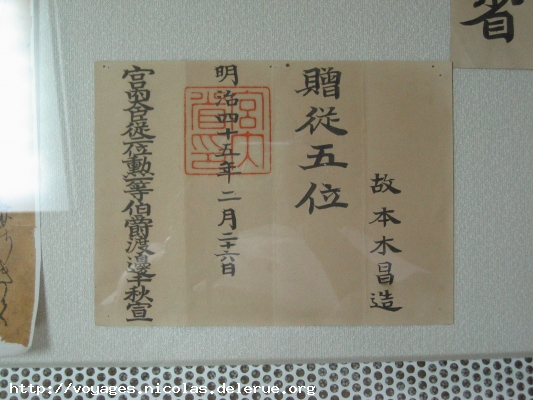 省
故本木昌造
贈従五位
明治四十五年二月二十六日
宮内省印
宮内大臣従二位勲一等伯爵渡邊千秋宣
http://voyages.nicolas.delerue.org